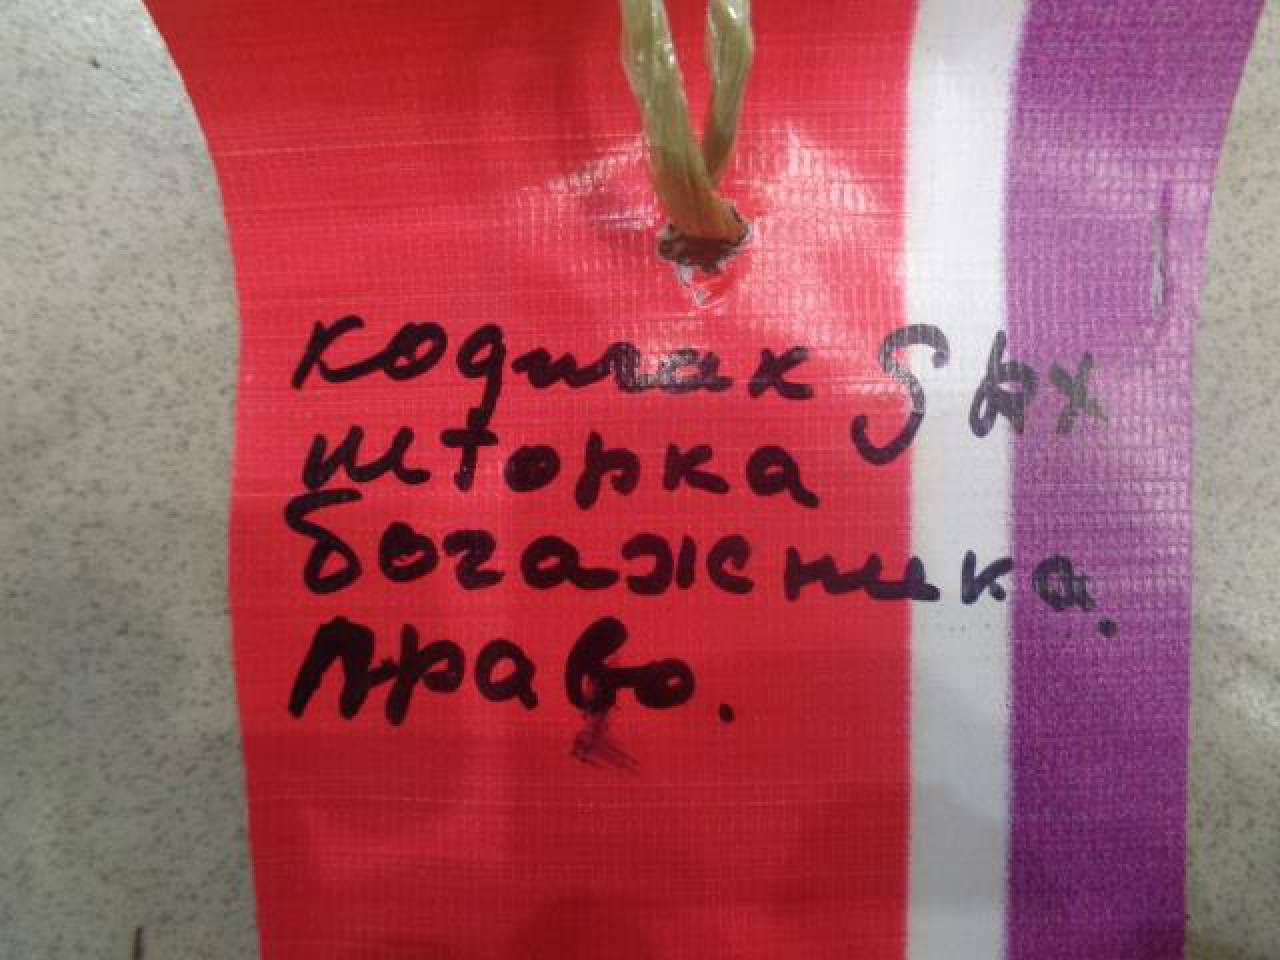 кодиак
шторка
багажника.
право.